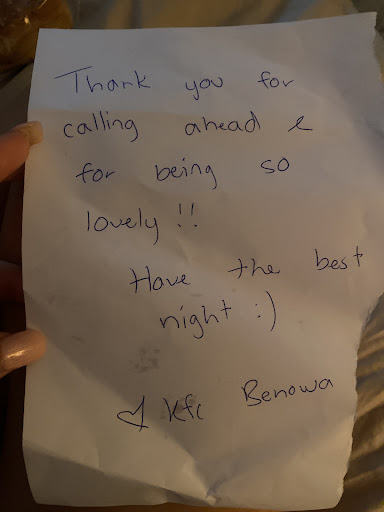 Thank you for
calling ahead &
for being so
lovely !!
Have the best
night :)
♡ Kfc Benowa